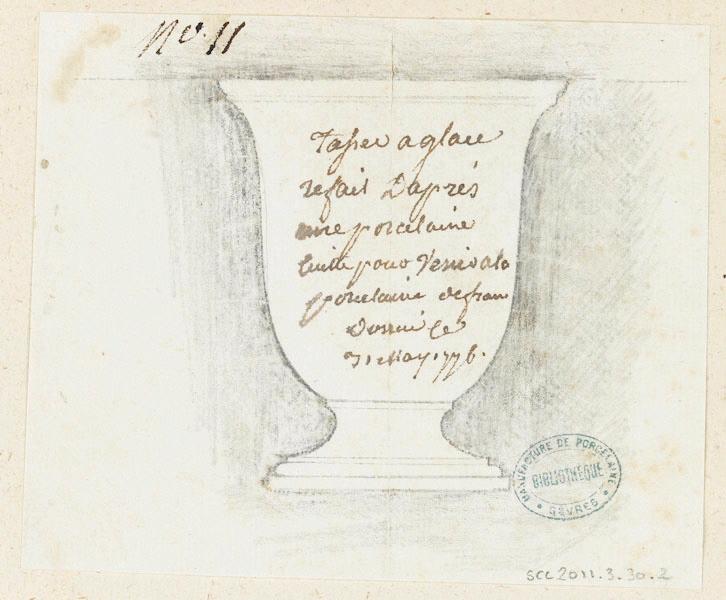 No. 11
Tasse a glace
refait Daprés
une porcelaine
Cuite pour Venir ala
porcelaine de france
Donné Ce
31 May 1776.
MANUFACTURE DE PORCELAINE
BIBLIOTHÈQUE
SÈVRES
SCC 2011.3.30.2